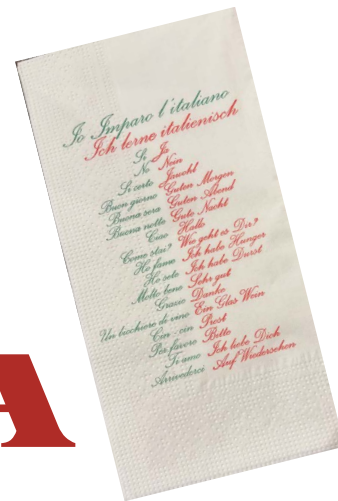 Io Imparo l'italiano
Ich lerne italienisch
Si Ja
No Nein
Si certo Jawohl
Buon giorno Guten Morgen
Buona sera Guten Abend
Buona notte Gute Nacht
Ciao Hallo
Come stai? Wie geht es Dir?
Ho fame Ich habe Hunger
Ho sete Ich habe Durst
Molto bene Sehr gut
Grazie Danke
Un bicchiere di vino Ein Glas Wein
Cin-cin Prost
Per favore Bitte
Ti amo Ich liebe Dich
Arrivederci Auf Wiedersehen
A